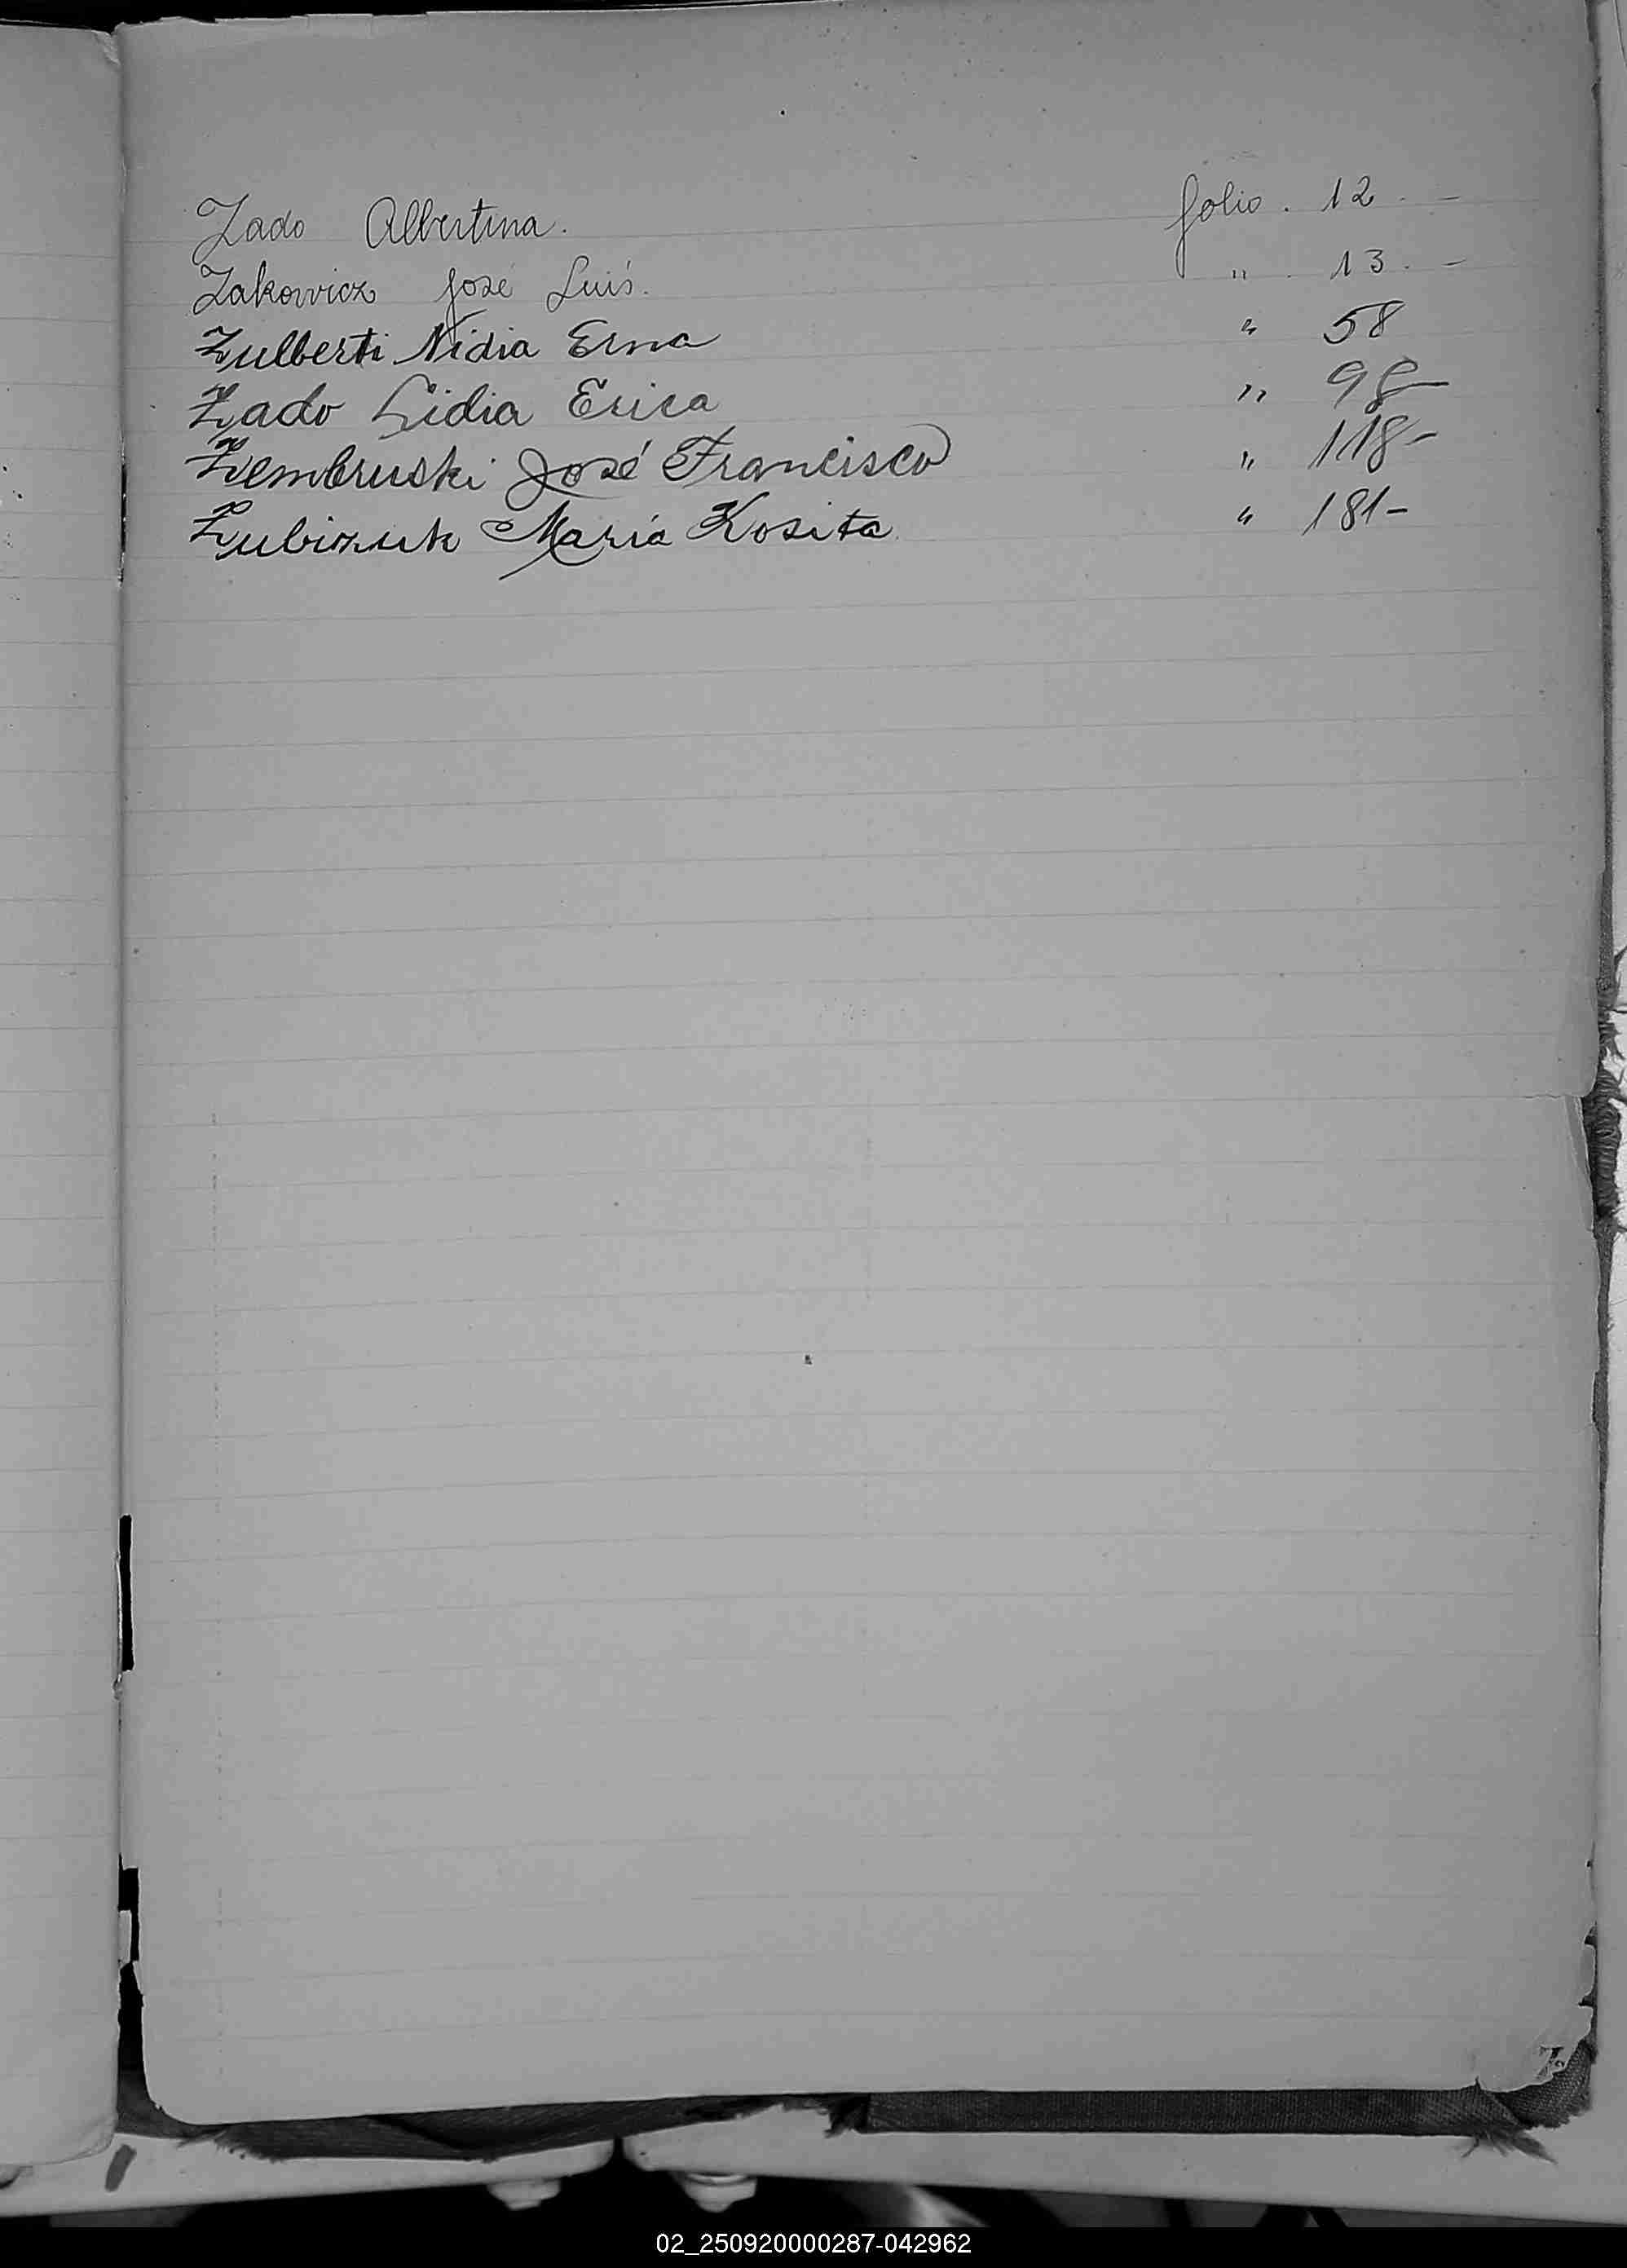 Zado Albertina. folio. 12. -
Zakowicz José Luis. " . 13. -
Zulberti Nidia Erna " 58
Zado Lidia Erica " 98-
Zembruski José Francisco " 118-
Zubizuk María Rosita. " 181-
Z.
02_250920000287-042962